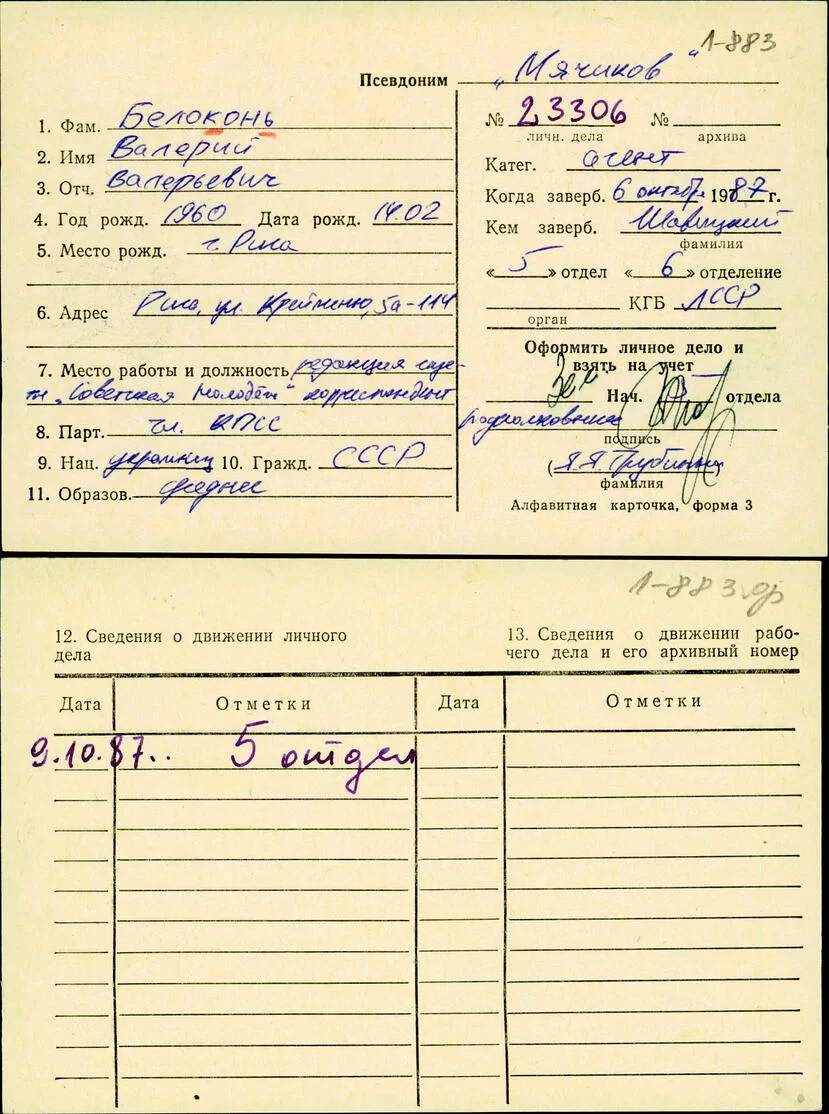 1-883
Псевдоним „Мячиков“
1. Фам. Белоконь
2. Имя Валерий
3. Отч. Валерьевич
4. Год рожд. 1960 Дата рожд. 14.02
5. Место рожд. г. Рига
6. Адрес Рига, ул. 5а-114
7. Место работы и должность редакция газе-
ты „Советская молодёжь“ корреспондент
8. Парт. чл. КПСС
9. Нац. украинец 10. Гражд. СССР
11. Образов. среднее
№ 23306 №
личн. дела архива
Катег. агент
Когда заверб. 6 октября 1987 г.
Кем заверб.
фамилия
« 5 » отдел « 6 » отделение
КГБ ЛССР
орган
Оформить личное дело и
взять на учет
Зам Нач. 5 отдела
подполковник
подпись
(Я.Я.)
фамилия
Алфавитная карточка, форма 3
1-883
12. Сведения о движении личного
дела
13. Сведения о движении рабо-
чего дела и его архивный номер
Дата Отметки Дата Отметки
9.10.87.. 5 отдел